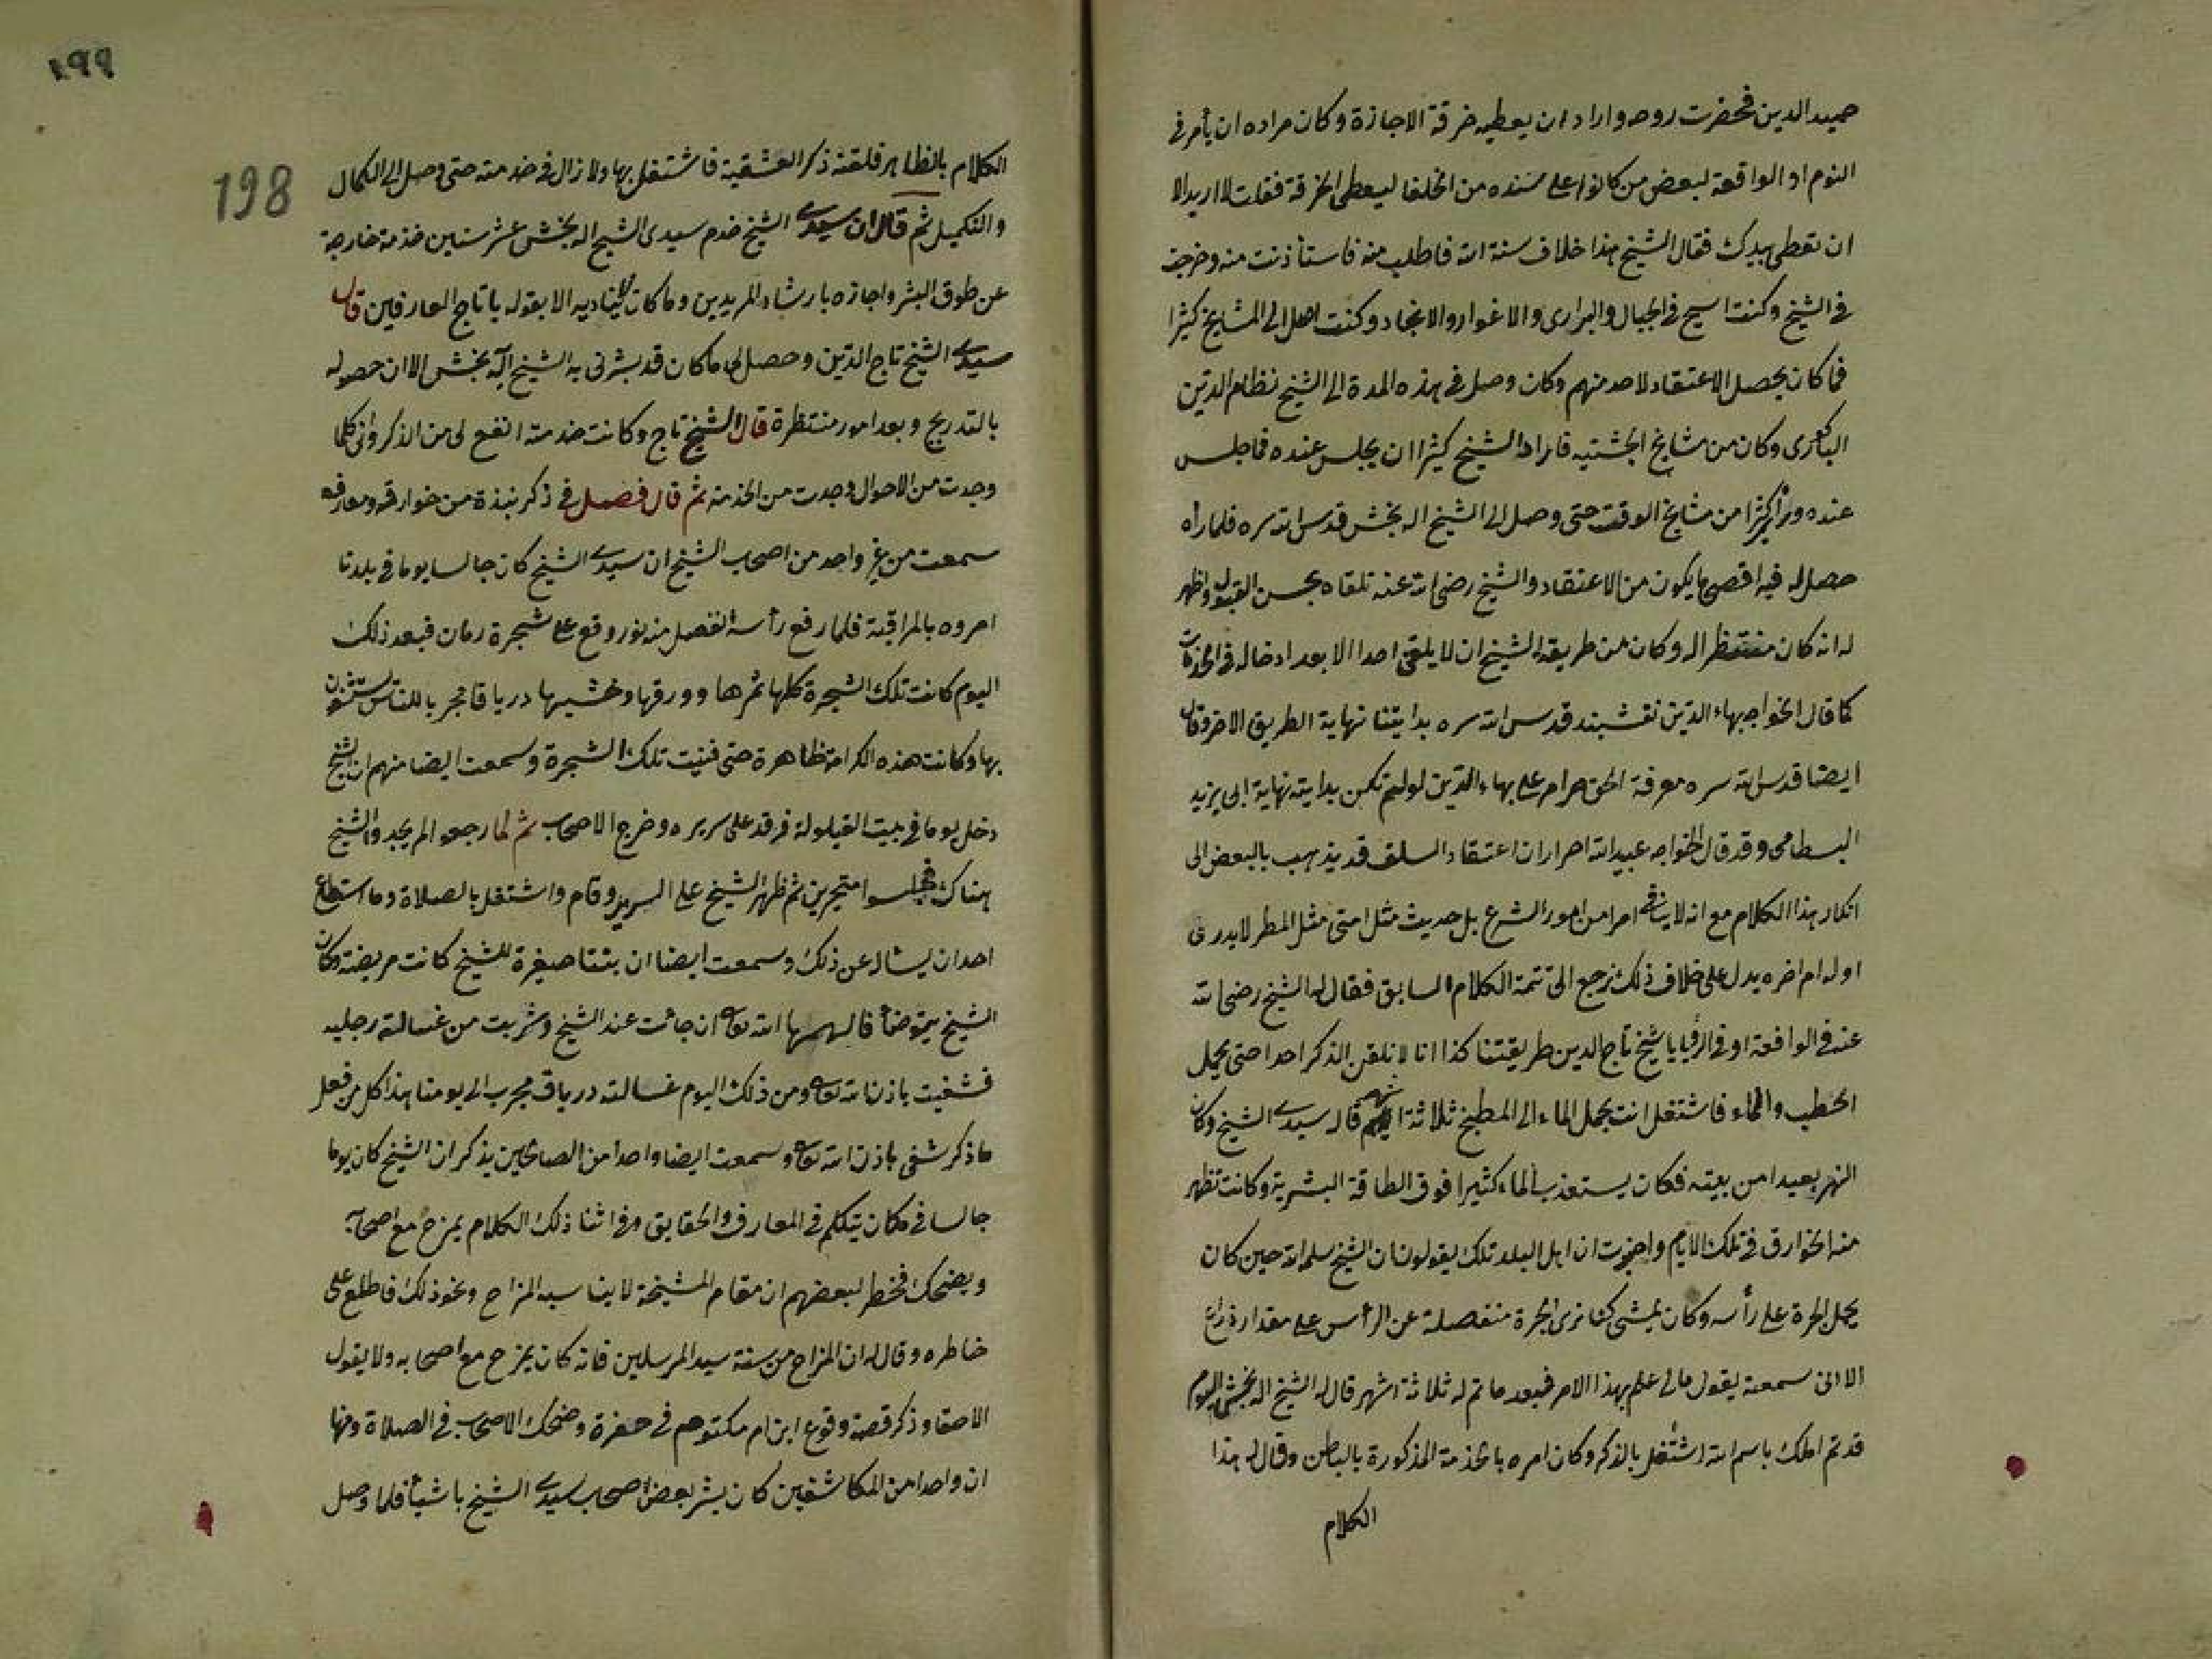 حميد الدين فحضرت روحه واراد ان يعطيه خرقة الاجازة وكان مراده ان يأمر في
النوم او الواقعة لبعض من كانوا على مسنده من الخلفا ليعطى الخرقة فقلت لا اريد الا
ان تعطى بيدك فقال الشيخ هذا خلاف سنة الله فاطلب منه فاستأذنت منه وخرجت
في الشيخ وكنت اسيح في الجبال والبرارى والاغوار والانجاد وكنت اصل الى المشايخ كثيرا
فما كان يحصل الاعتقاد لاحد منهم وكان وصل في هذه المدة الى الشيخ نظام الدين
وكان من مشايخ الجشتيه فاراد الشيخ كثيرا ان يجلس عنده فما جلس
عنده وزار كثيرا من مشايخ الوقت حتى وصل الى الشيخ اله بخش قدس الله سره فلما رأه
حصل له فيه اقصى ما يكون من الاعتقاد والشيخ رضى الله عنه تلقاه بحسن القبول واظهر
له انه كان منتظرا له وكان من طريقة الشيخ ان لا يلقن احدا الا بعد ادخاله في الخدمات
كما قال الخواجه بهاء الدين نقشبند قدس الله سره بدايتنا نهاية الطريق الاخر وقال
ايضا قدس الله سره معرفة الحق حرام على بهاء الدين لو لم تكن بدايته نهاية ابى يزيد
البسطامى وقد قال الخواجه عبيد الله احرار ان اعتقاد السلف قد يذهب بالبعض الى
انكار هذا الكلام مع انه لا يناقض امرا من امور الشرع بل حديث مثل امتى مثل المطر لا يدرى
اوله ام اخره يدل على خلاف ذلك نرجع الى تتمة الكلام السابق فقال له الشيخ رضى الله
عنه في الواقعة او في الرؤيا يا شيخ تاج الدين طريقتنا كذا انا لا نلقن الذكر احدا حتى يحمل
الحطب والماء فاشتغل انت بحمل الماء الى المطبخ ثلاثة اشهر قال سيدى الشيخ وكان
النهر بعيدا من بيته فكان يستعذب الماء كثيرا فوق الطاقة البشرية وكانت تظهر
منه الخوارق في تلك الايام واخبرت ان اهل البلد تلك يقولون ان الشيخ سلمه الله حين كان
يحمل الجرة على رأسه وكان يمشى كنا نرى الجرة منفصلة عن الرأس على مقدار ذراع
الا انى سمعته يقول مالى علم بهذا الامر فبعد ما تم له ثلاثة اشهر قال له الشيخ اله بخش اليوم
قد تم املك باسم الله اشتغل بالذكر وكان امره بالخدمة المذكورة بالباطن وقال له هذا
الكلام
١٩٩
198
الكلام بالظاهر فلقنه ذكر العشقية فاشتغل بها ولا زال في خدمته حتى وصل الى الكمال
والتكميل ثم قال ان سيدى الشيخ خدم سيدى الشيخ اله بخش عشر سنين خدمة خارجة
عن طوق البشر واجازه بارشاد المريدين وما كان يناديه الا بقوله يا تاج العارفين قال
سيدى الشيخ تاج الدين وحصل لى ما كان قد بشرنى به الشيخ اله بخش الا ان حصوله
بالتدريج وبعد امور منتظرة قال الشيخ تاج وكانت خدمته انفع لى من الذكر وانى كلما
وجدت من الاحوال وجدت من الخدمة ثم قال فصل في ذكر نبذة من خوارقه ومعارفه
سمعت من غير واحد من اصحاب الشيخ ان سيدى الشيخ كان جالسا يوما في بلدنا
امروه بالمراقبة فلما رفع رأسه انفصل منه نور وقع على شجرة رمان فبعد ذلك
اليوم كانت تلك الشجرة كلها ثمرها وورقها وخشبها درياقا مجربا للناس يستشفون
بها وكانت هذه الكرامة ظاهرة حتى فنيت تلك الشجرة وسمعت ايضا منهم ان الشيخ
دخل يوما في بيت القيلولة فرقد على سريره وخرج الاصحاب ثم لما رجعوا لم يجدوا الشيخ
هناك فجلسوا متحيرين ثم ظهر الشيخ على السرير وقام واشتغل بالصلاة وما استطاع
احد ان يسئاله عن ذلك وسمعت ايضا ان بنتا صغيرة للشيخ كانت مريضة وكان
الشيخ يتوضأ فالهمها الله تعالى ان جائت عند الشيخ وشربت من غسالة رجليه
فشفيت باذن الله تعالى ومن ذلك اليوم غسالته درياق مجرب الى يومنا هذا كل من فعل
ما ذكر شفى باذن الله تعالى وسمعت ايضا واحدا من الصالحين يذكر ان الشيخ كان يوما
جالسا في مكان يتكلم في المعارف والحقايق وفى اثنا ذلك الكلام يمزح مع اصحابه
ويضحك فخطر لبعضهم ان مقام المشيخة لا يناسبه المزاح ونحو ذلك فاطلع على
خاطره وقال له ان المزاح من سنة سيد المرسلين فانه كان يمزح مع اصحابه ولا يقول
الا حقا وذكر قصة وقوع ابن ام مكتوم في حفرة وضحك الاصحاب في الصلاة ومنها
ان واحدا من المكاشفين كان يبشر بعض اصحاب سيدى الشيخ باشياء فلما وصل